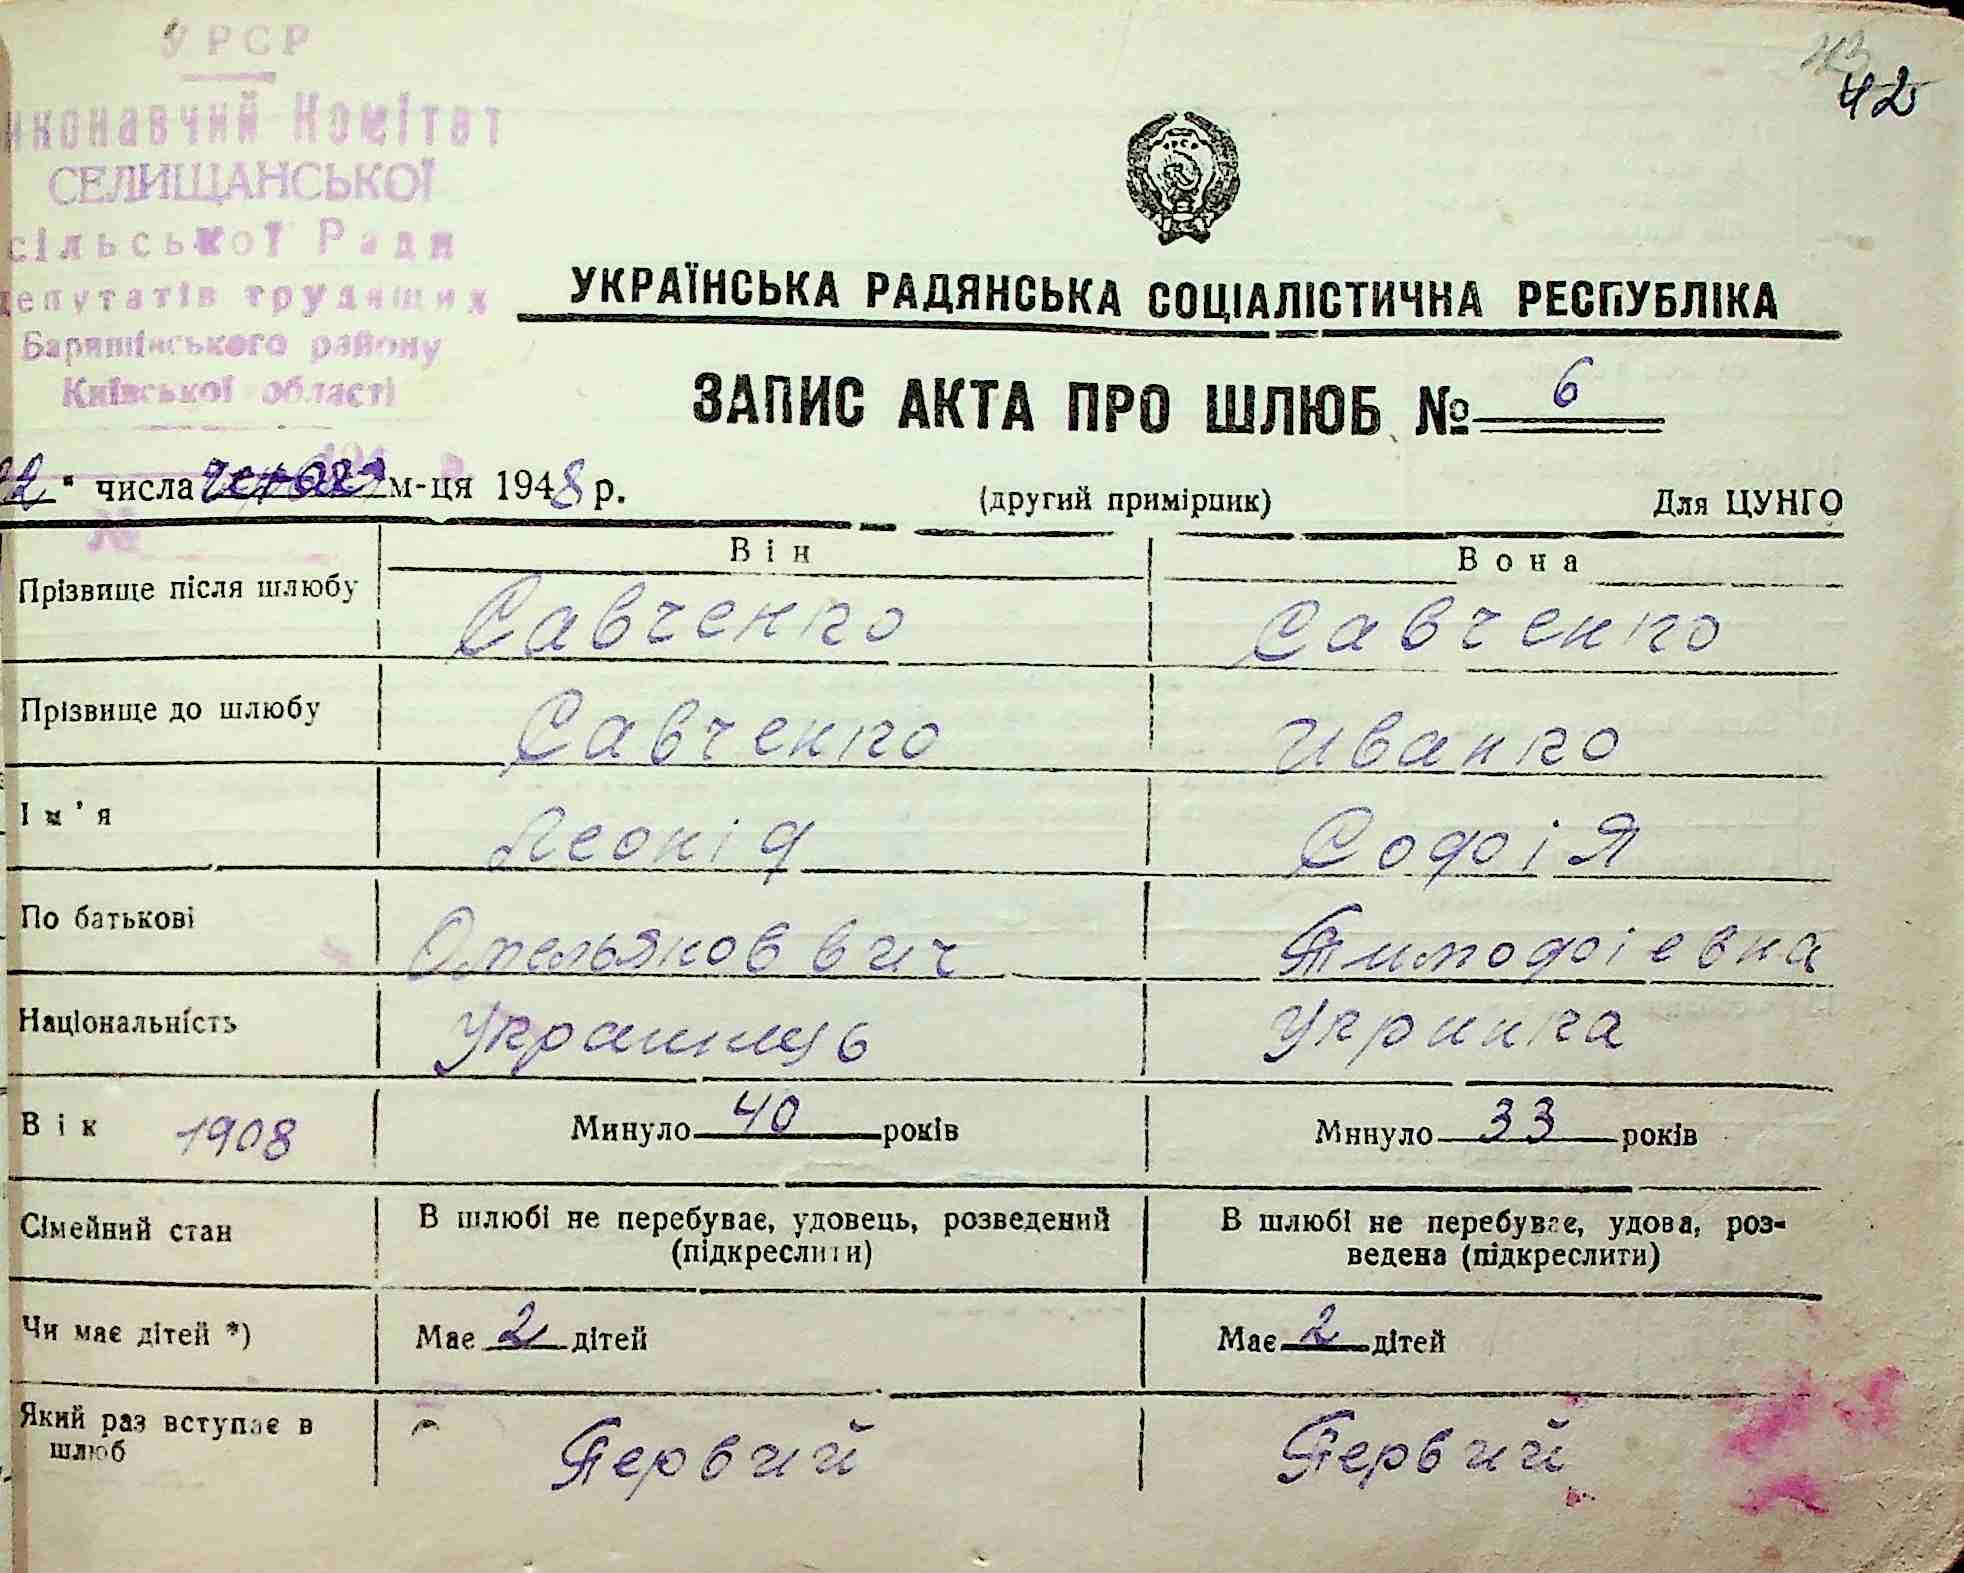 УРСР
иконавчий Комітет
СЕЛИЩАНСЬКОЇ
сільської Ради
депутатів трудящих
Баришівського району
Київської області
43
42
УРСР
УКРАЇНСЬКА РАДЯНСЬКА СОЦІАЛІСТИЧНА РЕСПУБЛІКА
ЗАПИС АКТА ПРО ШЛЮБ № 6
22 " числа червня м-ця 1948 р. (другий примірник) Для ЦУНГО
№
Він Вона
Прізвище після шлюбу Савченко Савченко
Прізвище до шлюбу Савченко Иванко
Ім'я Леонід Софія
По батькові Омельянович Тимофіевна
Національність Украинць Укринка
Вік 1908 Минуло 40 років Минуло 33 років
Сімейний стан В шлюбі не перебуває, удовець, розведений В шлюбі не перебуває, удова, роз-
(підкреслити) ведена (підкреслити)
Чи має дітей *) Має 2 дітей Має 2 дітей
Який раз вступає в Первий Первий
шлюб